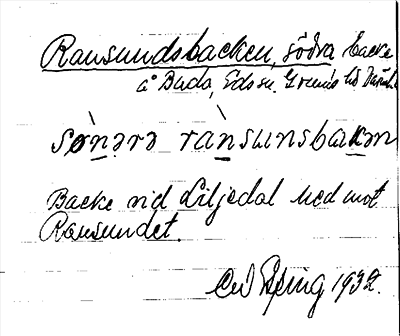 Ransundsbacken, södra backe
å Buda, Eds sn. Grums hd Värml.
sønərə rànsunsbakən
Backe vid Liljedal ned mot
Ransundet.
1932.